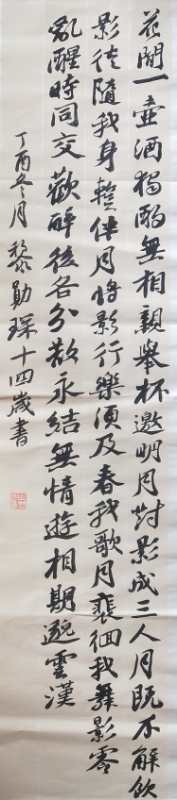 花間一壺酒獨酌無相親舉杯邀明月對影成三人月既不解飲
影徒隨我身暫伴月將影行樂須及春我歌月裵徊我舞影零
亂醒時同交歡醉後各分散永結無情遊相期邈雲漢
丁酉冬月黎勛琛十四歲書